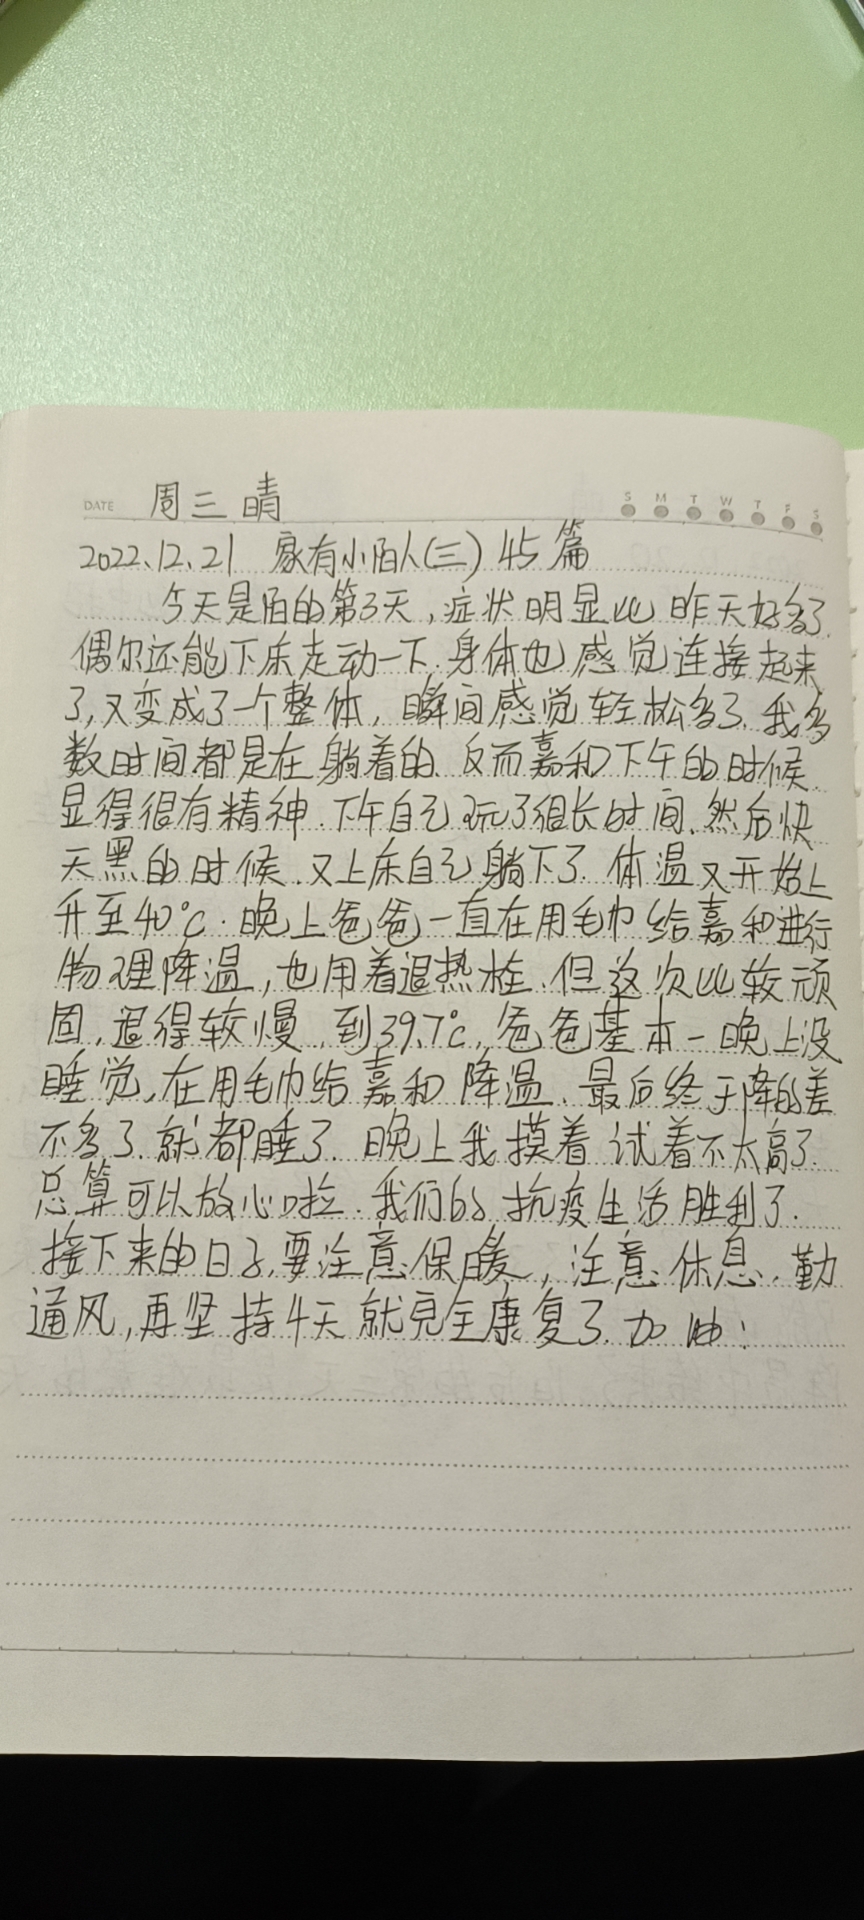 DATE 周三 晴 S M T W T F S
2022.12.21 家有小阳人(三) 45篇
今天是阳的第3天,症状明显比昨天好多了.
偶尔还能下床走动一下,身体也感觉连接起来
了,又变成了一个整体,瞬间感觉轻松多了.我多
数时间都是在躺着的.反而嘉和下午的时候.
显得很有精神.下午自己玩了很长时间.然后快
天黑的时候.又上床自己躺下了.体温又开始上
升至40℃.晚上爸爸一直在用毛巾给嘉和进行
物理降温,也用着退热栓.但这次比较顽
固,退得较慢,到39.7℃,爸爸基本一晚上没
睡觉,在用毛巾给嘉和降温.最后终于降的差
不多了.就都睡了.晚上我摸着试着不太高了.
总算可以放心啦.我们的抗疫生活胜利了.
接下来的日子,要注意保暖,注意休息.勤
通风,再坚持4天就完全康复了.加油!